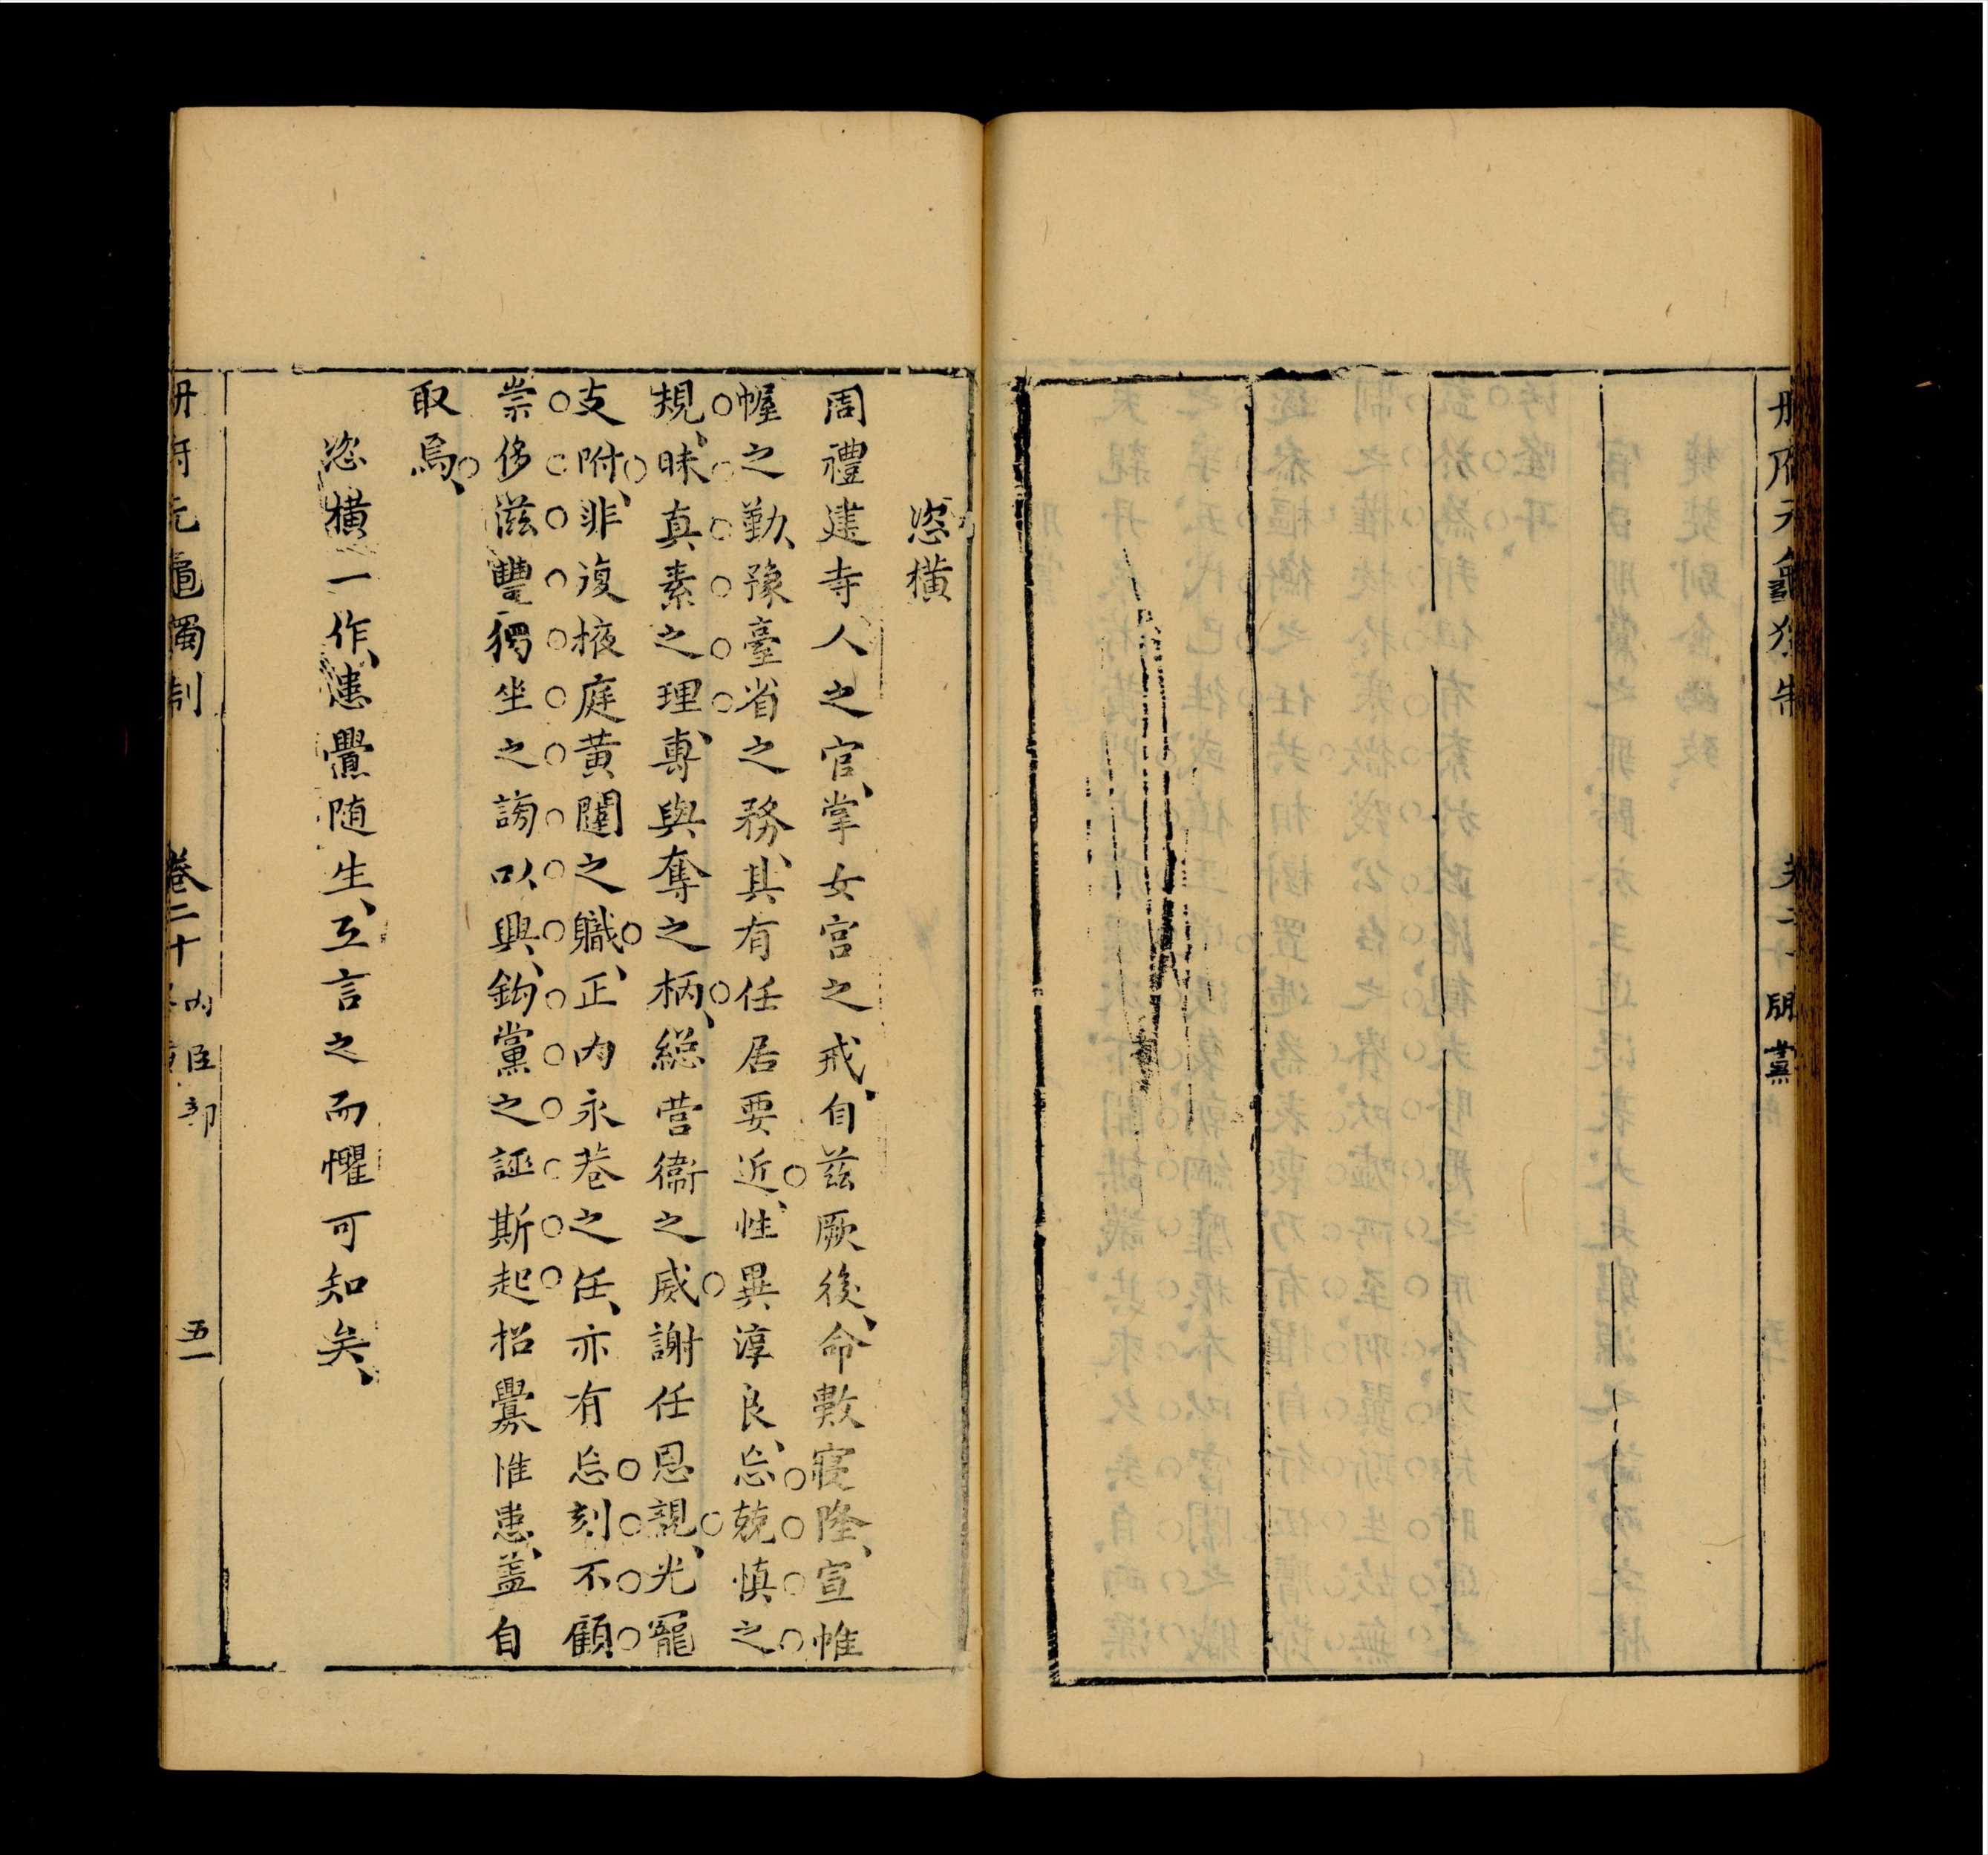 冊府元龜獨制
卷二十
朋黨
恣橫
周禮建寺人之官、掌女宮之戒、自茲厥後、命數寖隆、宣帷
幄之勤、豫臺省之務、其有任居要近、性異淳良、忘兢慎之
規、昧真素之理、專與奪之柄、緫營衞之威、謝任恩親、光寵
支附、非復掖庭黃闥之職、正內永巷之任、亦有忘刻不顧
崇侈滋豐、獨坐之謗以興、鈎黨之誣斯起、招釁惟患、盖自
取焉、
恣橫一作、患釁随生、互言之而懼可知矣、
冊府元龜獨制
卷二十
內臣部
五一